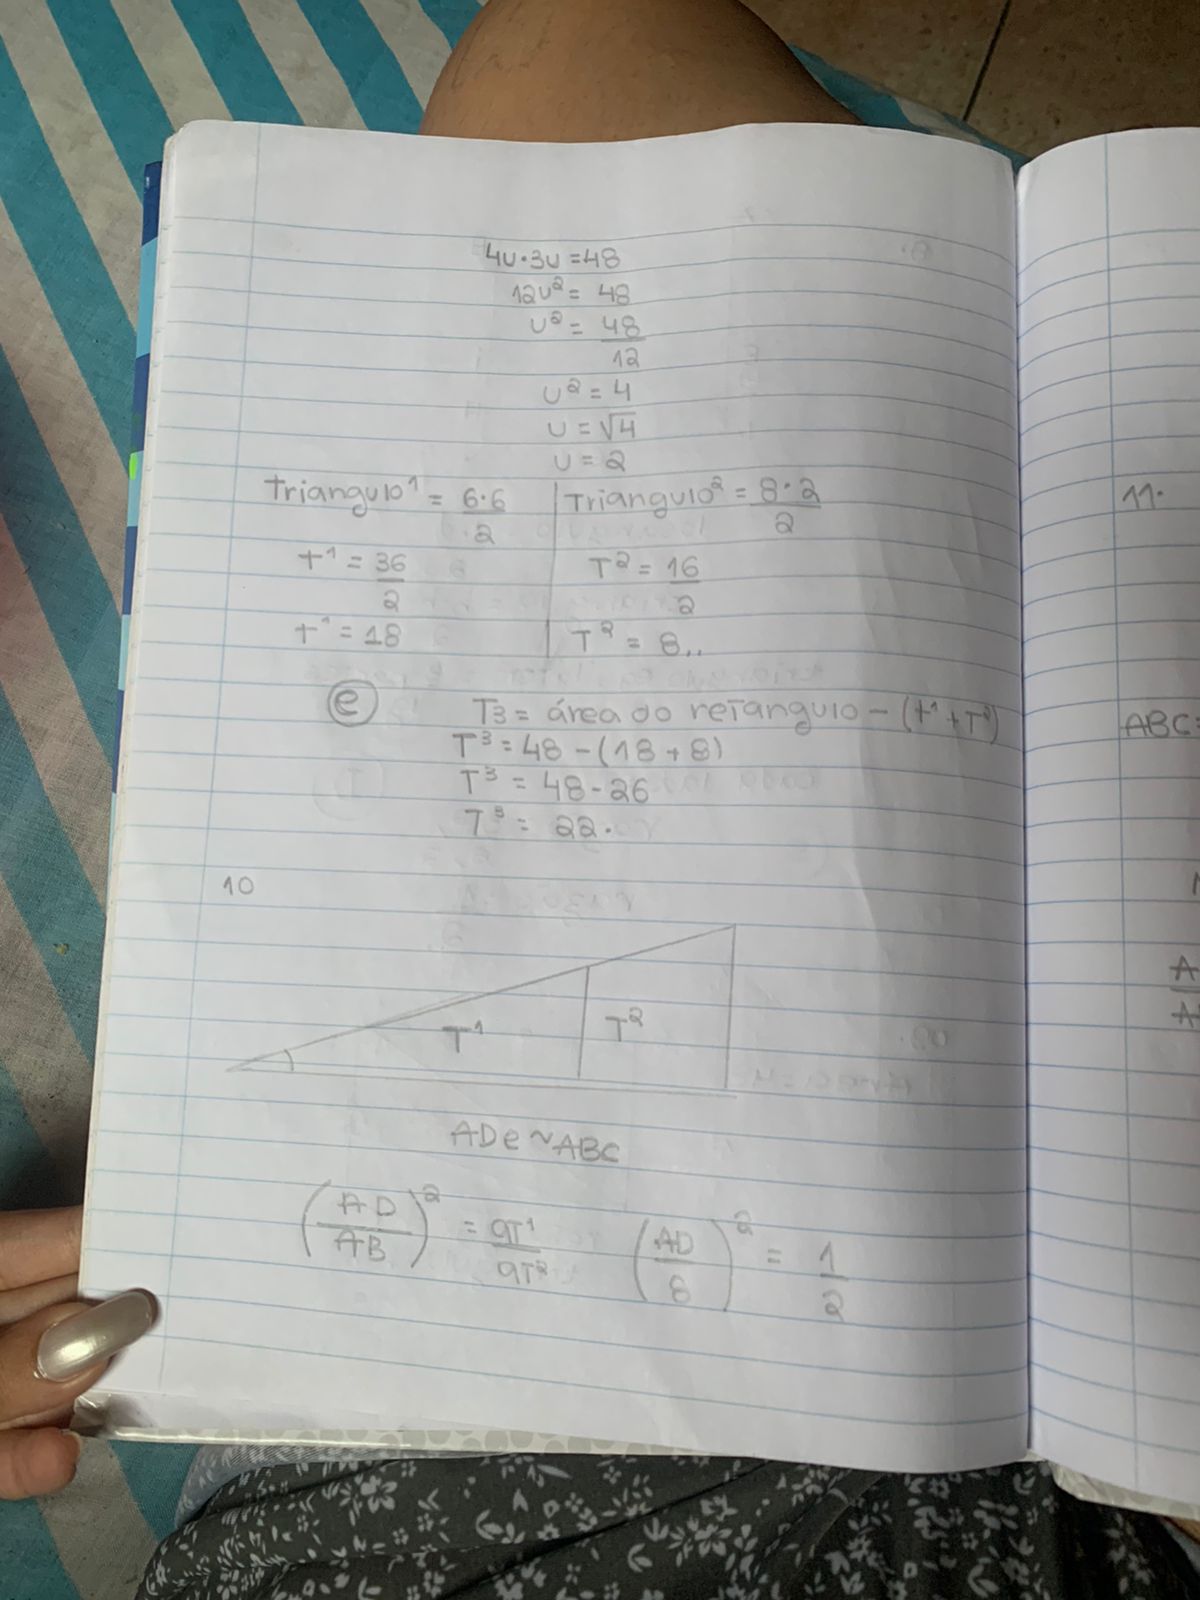 4u·3u=48
12u²= 48
u² = 48
12
u² = 4
u = √4
u = 2
Triangulo¹ = 6·6
2
Triangulo² = 8·2
2
t¹ = 36
2
T² = 16
2
t¹ = 18
T² = 8,,
e
T3 = área do retangulo - (t¹ + T²)
T³ = 48 - (18 + 8)
T³ = 48 - 26
T³ = 22.
10
T¹
T²
ADe ~ ABC
(AD/AB)² = aT¹/aT² (AD/8)² = 1/2
11.
ABC=